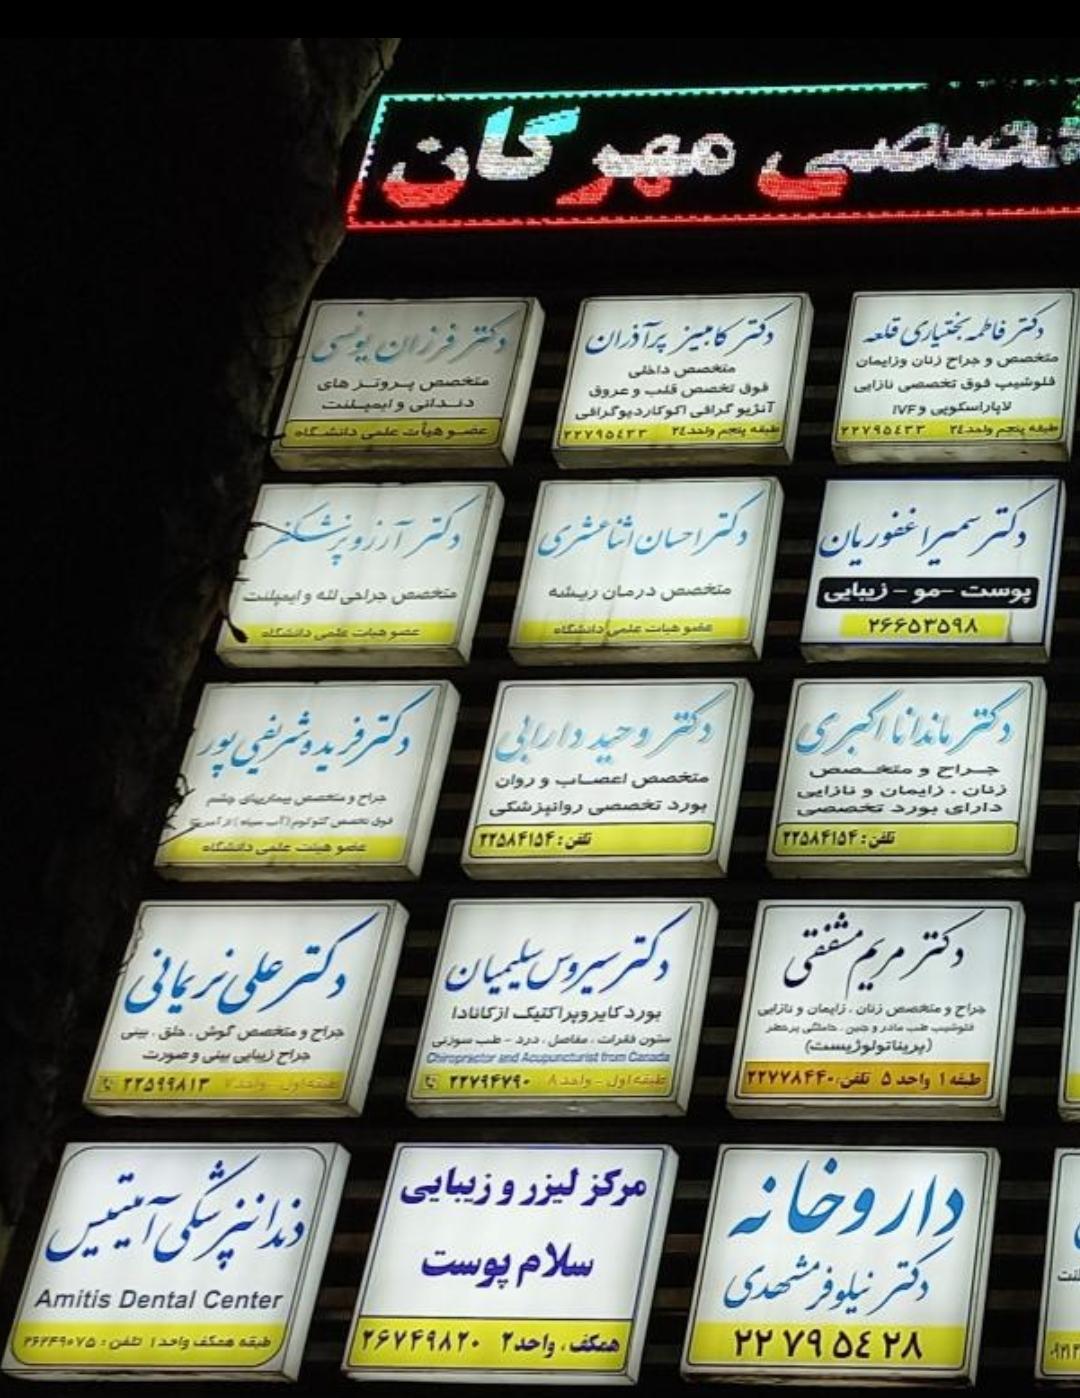 تخصصی مهرگان
دکتر فاطمه بختیاری قلعه
متخصص و جراح زنان وزایمان
فلوشیپ فوق تخصصی نازایی
لاپاراسکوپی و IVF
طبقه پنجم واحد ۲٤ ۲۲۷۹٥٤۳۳
دکتر کامبیز پرآذران
متخصص داخلی
فوق تخصص قلب و عروق
آنژیو گرافی اکوکاردیوگرافی
طبقه پنجم واحد ۲٤ ۲۲۷۹٥٤۳۳
دکتر فرزان یونسی
متخصص پروتز های
دندانی و ایمپلنت
عضو هیأت علمی دانشگاه
دکتر سمیرا غفوریان
پوست - مو - زیبایی
۲۶۶۵۳۵۹۸
دکتر احسان اثناعشری
متخصص درمان ریشه
عضو هیات علمی دانشگاه
دکتر آرزو پزشکفر
متخصص جراحی لثه و ایمپلنت
عضو هیات علمی دانشگاه
دکتر ماندانا اکبری
جراح و متخصص
زنان . زایمان و نازایی
دارای بورد تخصصی
تلفن : ۲۲۵۸۴۱۵۴
دکتر وحید دارابی
متخصص اعصاب و روان
بورد تخصصی روانپزشکی
تلفن : ۲۲۵۸۴۱۵۴
دکتر فریده شریفی پور
جراح و متخصص بیماریهای چشم
فوق تخصص گلوکوم (آب سیاه) از آمریکا
عضو هیئت علمی دانشگاه
دکتر مریم مشفقی
جراح و متخصص زنان ، زایمان و نازایی
فلوشیپ طب مادر و جنین ، حاملگی پرخطر
(پریناتولوژیست)
طبقه ۱ واحد ۵ تلفن: ۲۲۷۷۸۴۴۰
دکتر سیروس سلیمیان
بورد کایروپراکتیک از کانادا
ستون فقرات ، مفاصل ، درد - طب سوزنی
Chiropractor and Acupuncturist from Canada
طبقه اول - واحد ۸ ۲۲۷۹۴۷۹۰
دکتر علی نریمانی
جراح و متخصص گوش ، حلق ، بینی
جراح زیبایی بینی و صورت
طبقه اول - واحد ۷ ۲۲۵۹۹۸۱۳
داروخانه
دکتر نیلوفر مشهدی
۲۲ ۷۹ ۵٤ ۲۸
مرکز لیزر و زیبایی
سلام پوست
همکف ، واحد ۲ ۲۶۷۴۹۸۲۰
دندانپزشکی آمیتیس
Amitis Dental Center
طبقه همکف واحد ۱ تلفن : ۲۶۲۴۹۰۷۵